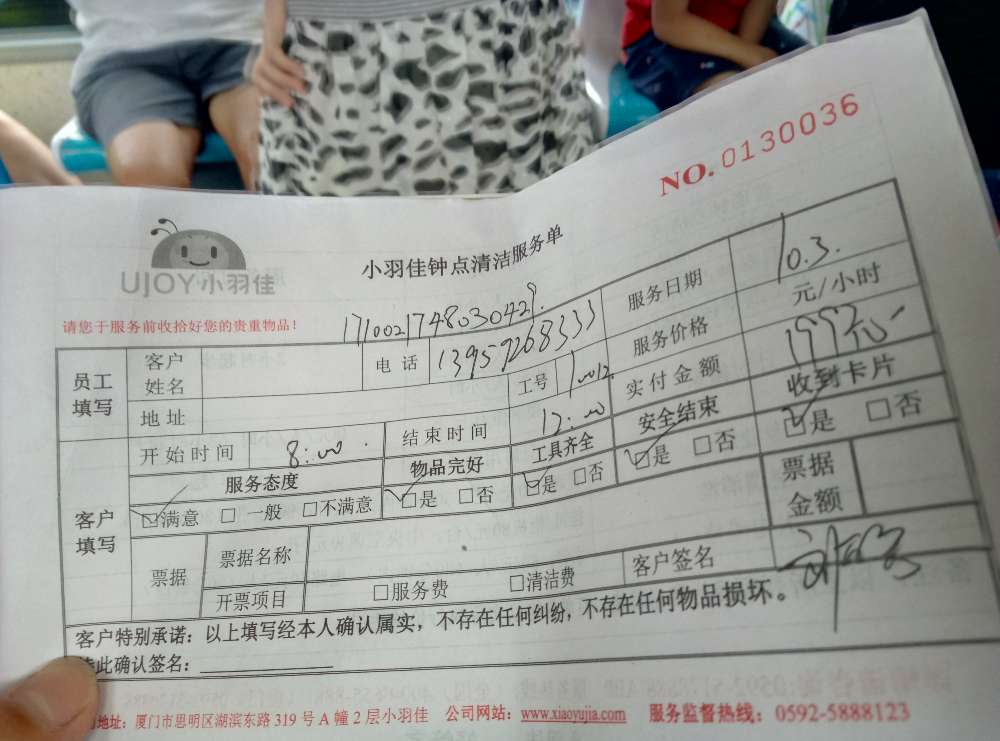 NO.0130036
UJOY小羽佳
小羽佳钟点清洁服务单
请您于服务前收拾好您的贵重物品！
1710021748030429
员工填写 客户姓名 电话 13959268333 服务日期 10.3.
服务价格 元/小时
地址 工号 10012 实付金额 199元
开始时间 8:00 结束时间 12:00 安全结束 收到卡片
服务态度 物品完好 工具齐全 是 否 是 否
客户填写 满意 一般 不满意 是 否 是 否
票据 票据名称 票据金额
开票项目 服务费 清洁费 客户签名
客户特别承诺：以上填写经本人确认属实，不存在任何纠纷，不存在任何物品损坏。
此确认签名：
地址：厦门市思明区湖滨东路319号A幢2层小羽佳 公司网站：www.xiaoyujia.com 服务监督热线：0592-5888123